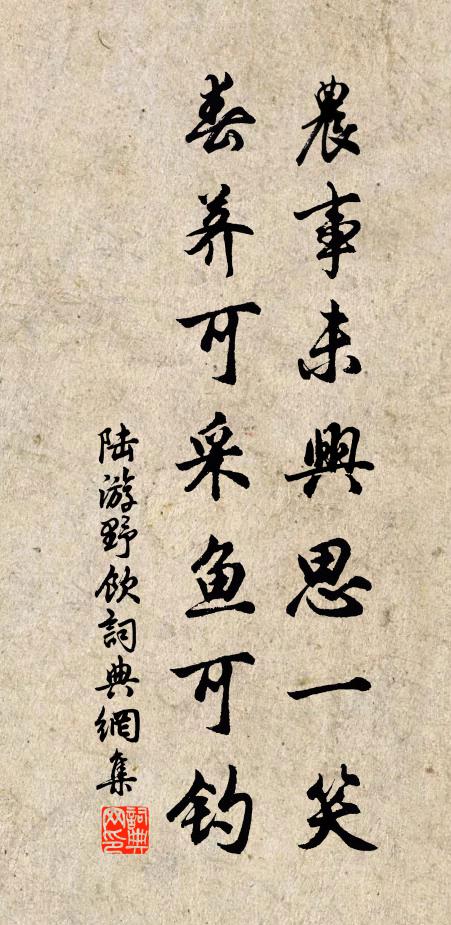 農事未興思一笑
春荠可采鱼可钓
陆游野飲詞典網集
詞典网印